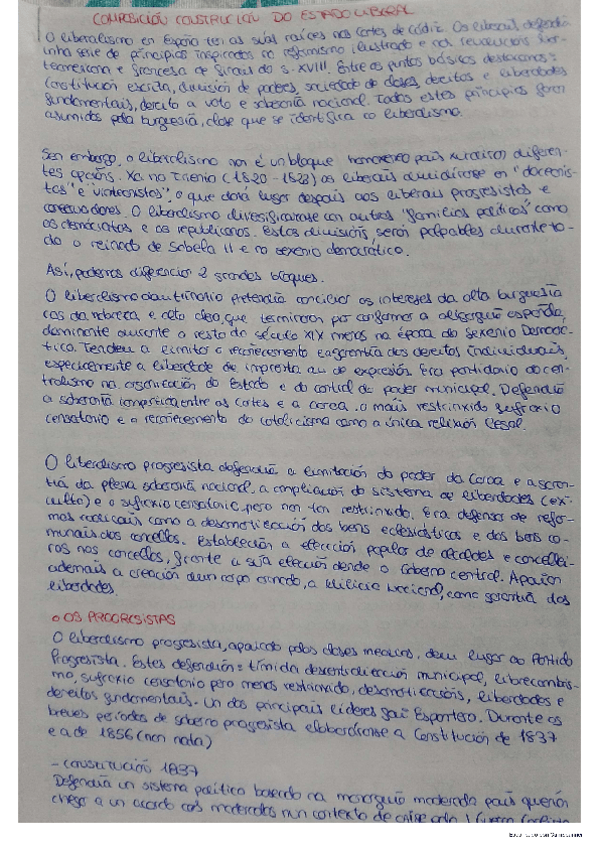 COMPOSICIÓN CONSTRUCIÓN DO ESTADO LIBERAL
O liberalismo en España ten as súas raíces nas cortes de Cádiz. Os liberais defendían
unha serie de principios inspirados no reformismo ilustrado e nas revolucións nor-
teamericana e francesa de finais do s. XVIII. Entre os puntos básicos destacamos:
Constitución escrita, división de poderes, sociedade de clases, dereitos e liberdades
fundamentais, dereito a voto e soberanía nacional. Todos estes principios foron
asumidos pola burguesía, clase que se identifica co liberalismo.
Sen embargo, o liberalismo non é un bloque homoxéneo pois xurdiron diferen-
tes opcións. Xa no Trienio (1820-1823) os liberais dividíronse en "doceanis-
tas" e "vinteanistas", o que dará lugar despois aos liberais progresistas e
conservadores. O liberalismo diversificarase con outras "familias políticas" como
os demócratas e os republicanos. Estas divisións, serán palpables durante to-
do o reinado de Sabela II e no sexenio democrático.
Así, podemos diferenciar 2 grandes bloques.
O liberalismo doutrinario pretendía conciliar os intereses da alta burguesía
cos da nobreza e alto clero, que terminaron por conformar a oligarquía española,
dominante durante o resto do século XIX menos na época do Sexenio Democrá-
tico. Tendeu a limitar o recoñecemento e a garantía dos dereitos individuais,
especialmente a liberdade de imprenta ou de expresión. Era partidario do cen-
tralismo na organización do Estado e do control do poder municipal. Defendía
a soberanía compartida entre as Cortes e a coroa, o máis restrinxido sufraxio
censatario e o recoñecemento do catolicismo como a única relixión legal.
O liberalismo progresista defendía a limitación do poder da Coroa e a garan-
tía da plena soberanía nacional, a ampliación do sistema de liberdades (ex:
culto) e o sufraxio censatario, pero non tan restrinxido. Era defensor de refor-
mas radicais como a desamortización dos bens eclesiásticos e dos bens co-
munais dos concellos. Establecían a elección popular de alcaldes e concellei-
ros nos concellos, fronte a súa elección dende o Goberno central. Apoiaron
ademais a creación dun corpo armado, a Milicia Nacional, como garantía das
liberdades.
OS PROGRESISTAS
O liberalismo progresista, apoiado polas clases medias, deu lugar ao Partido
Progresista. Estes defendían: tímida descentralización municipal, librecambis-
mo, sufraxio censatario pero menos restrinxido, desamortizacións, liberdades e
dereitos fundamentais. Un dos principais líderes foi Espartero. Durante os
breves períodos de goberno progresista elaboráronse a Constitución de 1837
e a de 1856 (non nata)
- CONSTITUCIÓN 1837
Defendía un sistema político baseado na monarquía moderada pois querían
chegar a un acordo cos moderados nun contexto de